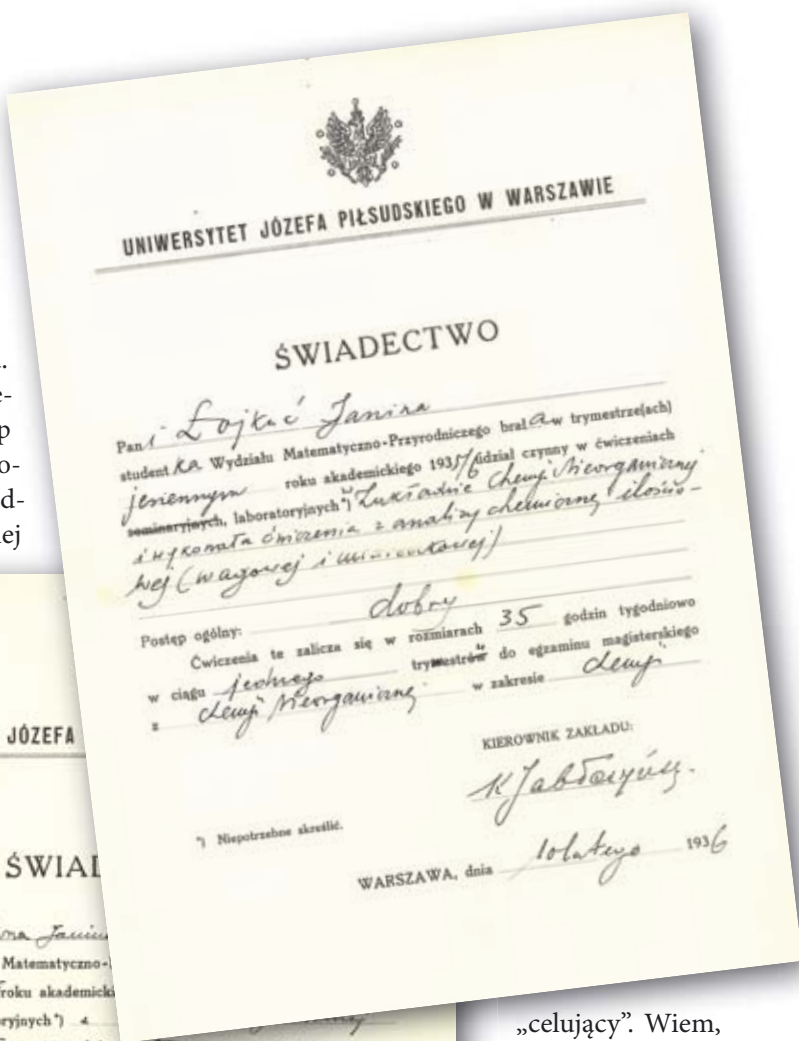 UNIWERSYTET JÓZEFA PIŁSUDSKIEGO W WARSZAWIE
ŚWIADECTWO
Pani Łojkuć Janina
studentka Wydziału Matematyczno-Przyrodniczego brała w trymestrze(ach)
jesiennym roku akademickiego 1935/6 udział czynny w ćwiczeniach
seminaryjnych, laboratoryjnych *) Zakładzie Chemji Nieorganicznej
i wykonała ćwiczenia z analizy chemicznej ilościo-
wej (wagowej i miareczkowej)
Postęp ogólny: dobry
Ćwiczenia te zalicza się w rozmiarach 35 godzin tygodniowo
w ciągu jednego trymestru do egzaminu magisterskiego
z chemji Nieorganicznej w zakresie chemji
KIEROWNIK ZAKŁADU:
K Jabłczyński.
*) Niepotrzebne skreślić.
WARSZAWA, dnia 10 lutego 1936
JÓZEFA
ŚWIAD
Janin
Matematyczno-
roku akademick
ryjnych *)
„celujący”. Wiem,